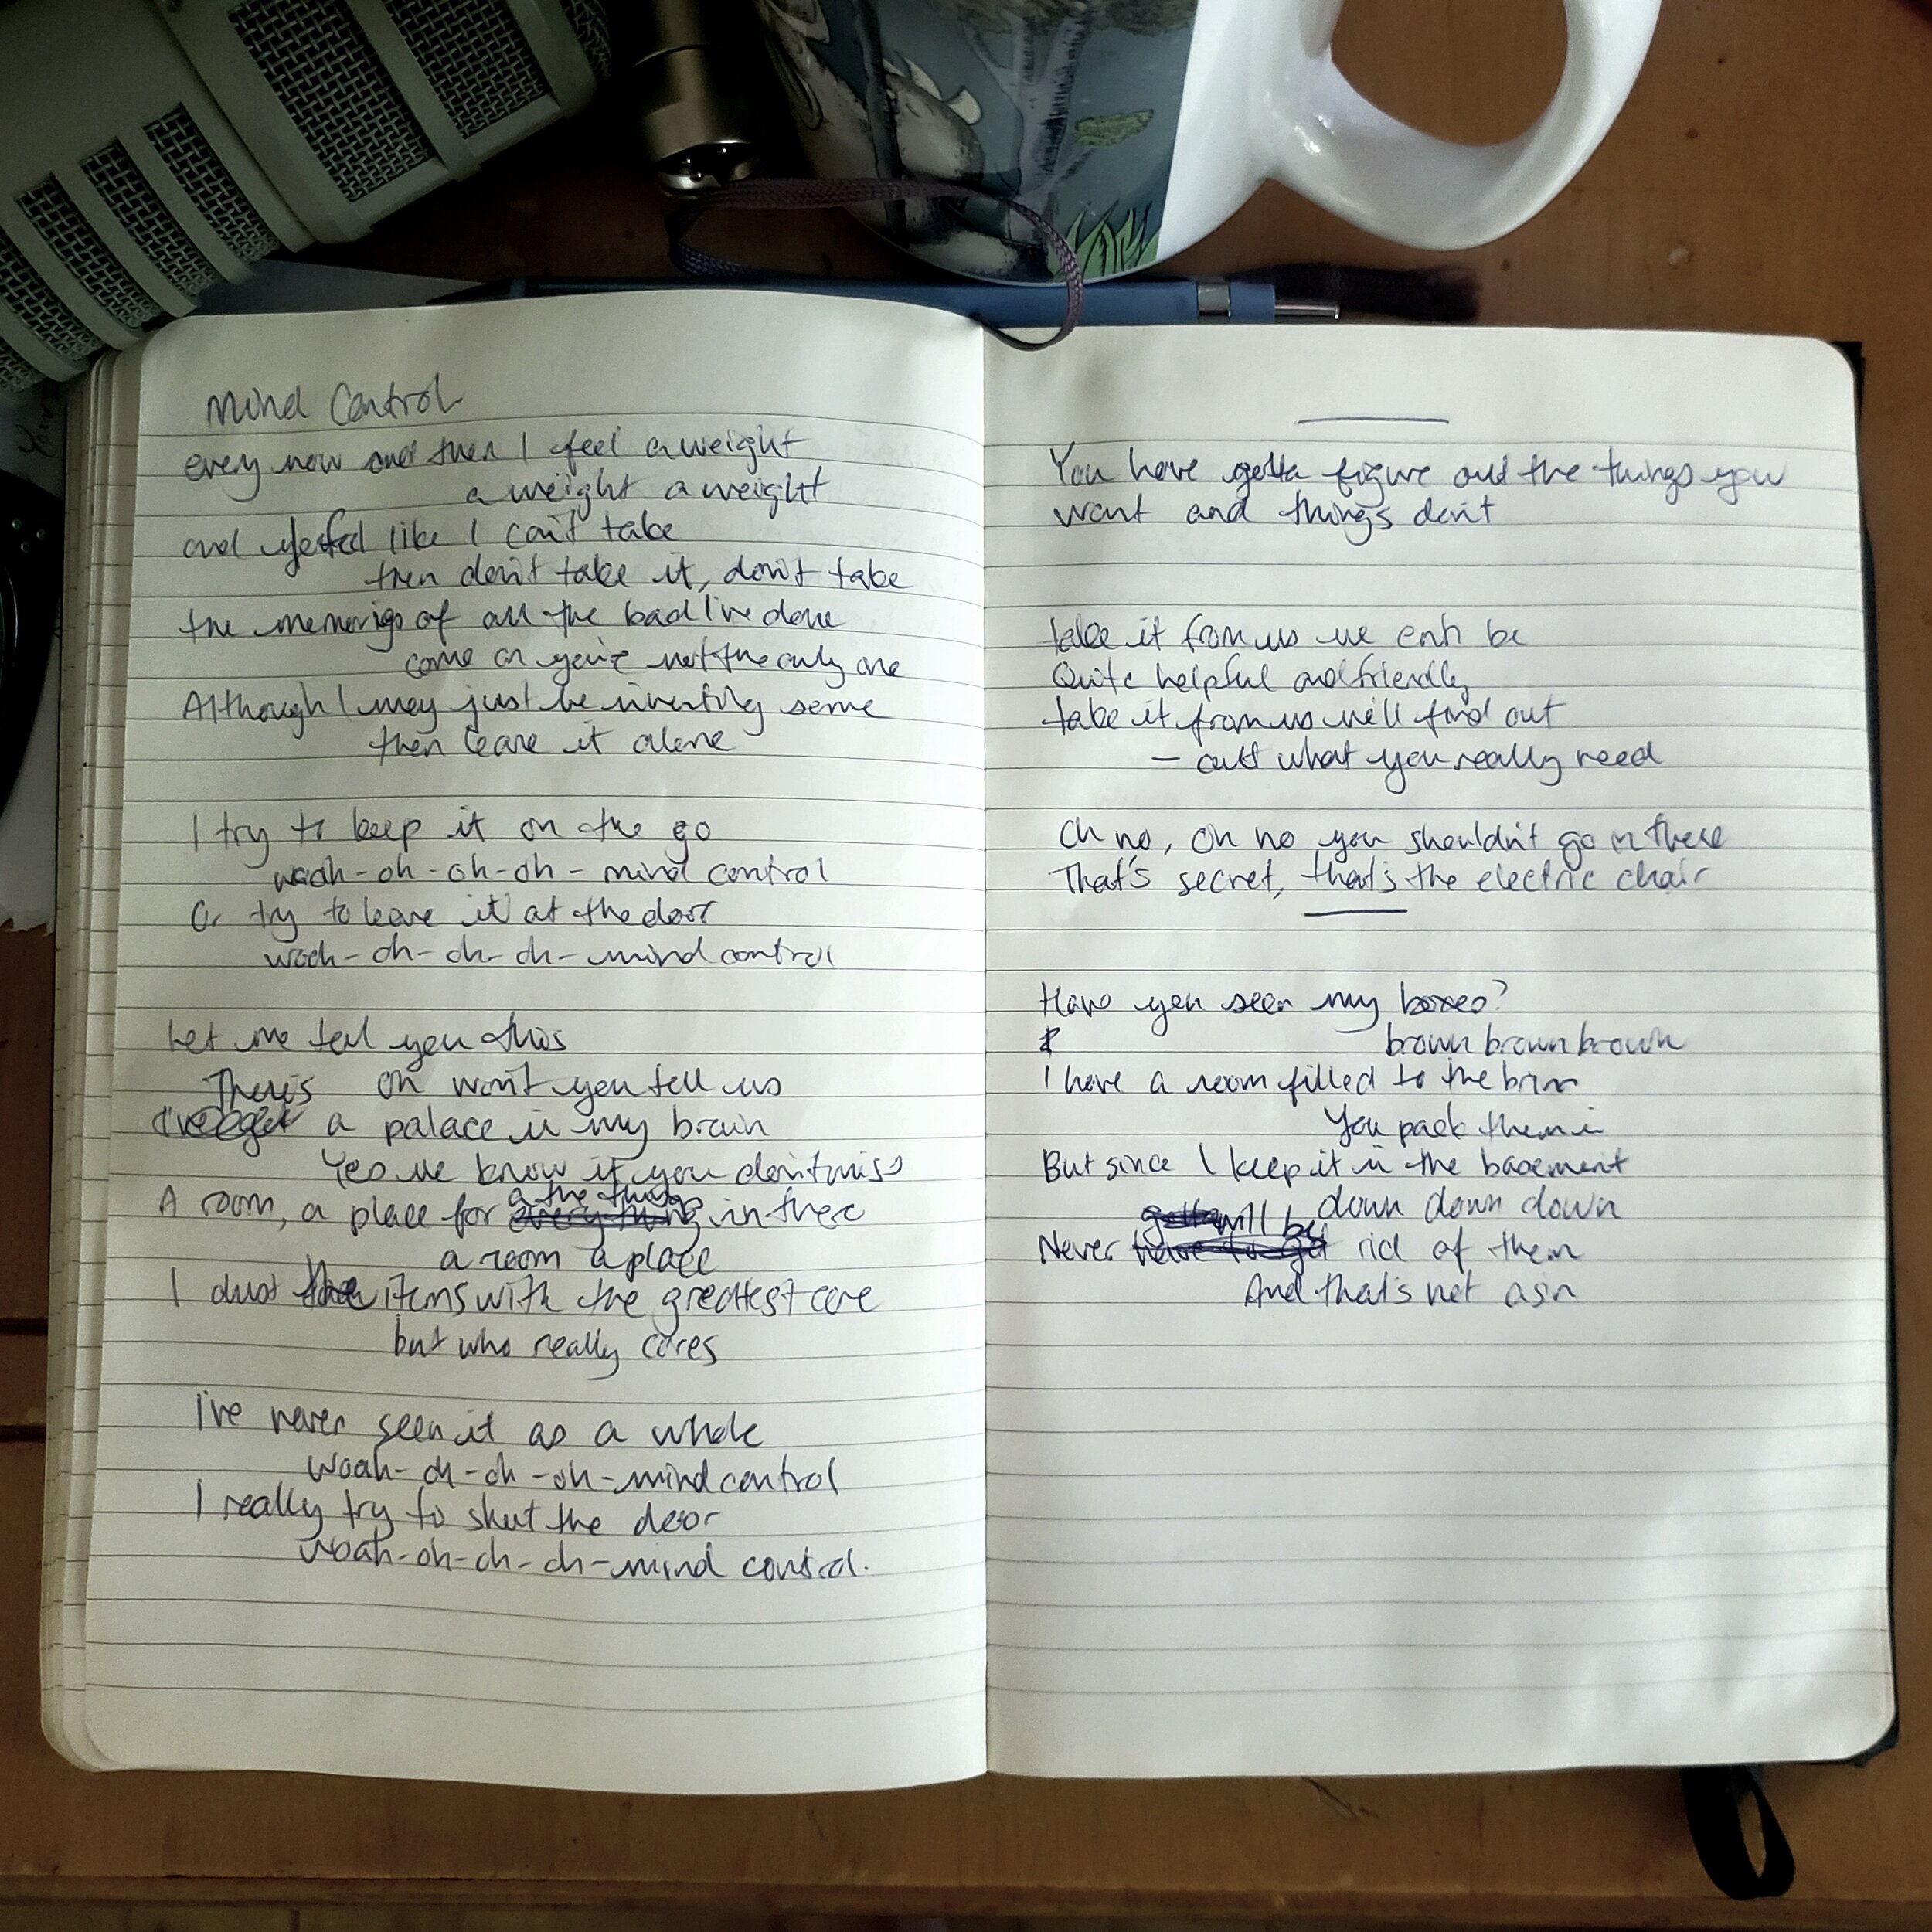 Mind Control
every now and then I feel a weight
a weight a weight
and feel like I can't take
then don't take it, don't take
the memories of all the bad I've done
come on you're not the only one
Although I may just be inventing some
then leave it alone
I try to keep it on the go
woah-oh-oh-oh-mind control
Or try to leave it at the door
woah-oh-oh-oh-mind control
Let me tell you this
Oh won't you tell us
There's a palace in my brain
Yes we know it you don't miss
A room, a place for the things in there
a room a place
I dust the items with the greatest care
but who really cares
I've never seen it as a whole
Woah-oh-oh-oh-mind control
I really try to shut the door
woah-oh-oh-oh-mind control.
You have gotta figure out the things you
want and things don't
take it from us we can be
Quite helpful and friendly
take it from us we'll find out
- out what you really need
Oh no, Oh no you shouldn't go in there
That's secret, that's the electric chair
Have you seen my boxes?
brown brown brown
I have a room filled to the brim
You pack them in
But since I keep it in the basement
down down down
Never will be rid of them
And that's not a sin